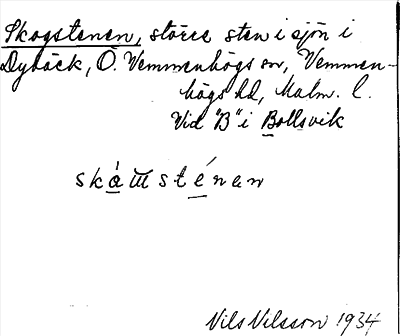 Skogstenen, större sten i sjön i
Dybäck, Ö. Vemmenhögs sn, Vemmen-
högs hd, Malm. l.
Vid "B" i Bollsvik
sténan
Nils Nilsson 1934